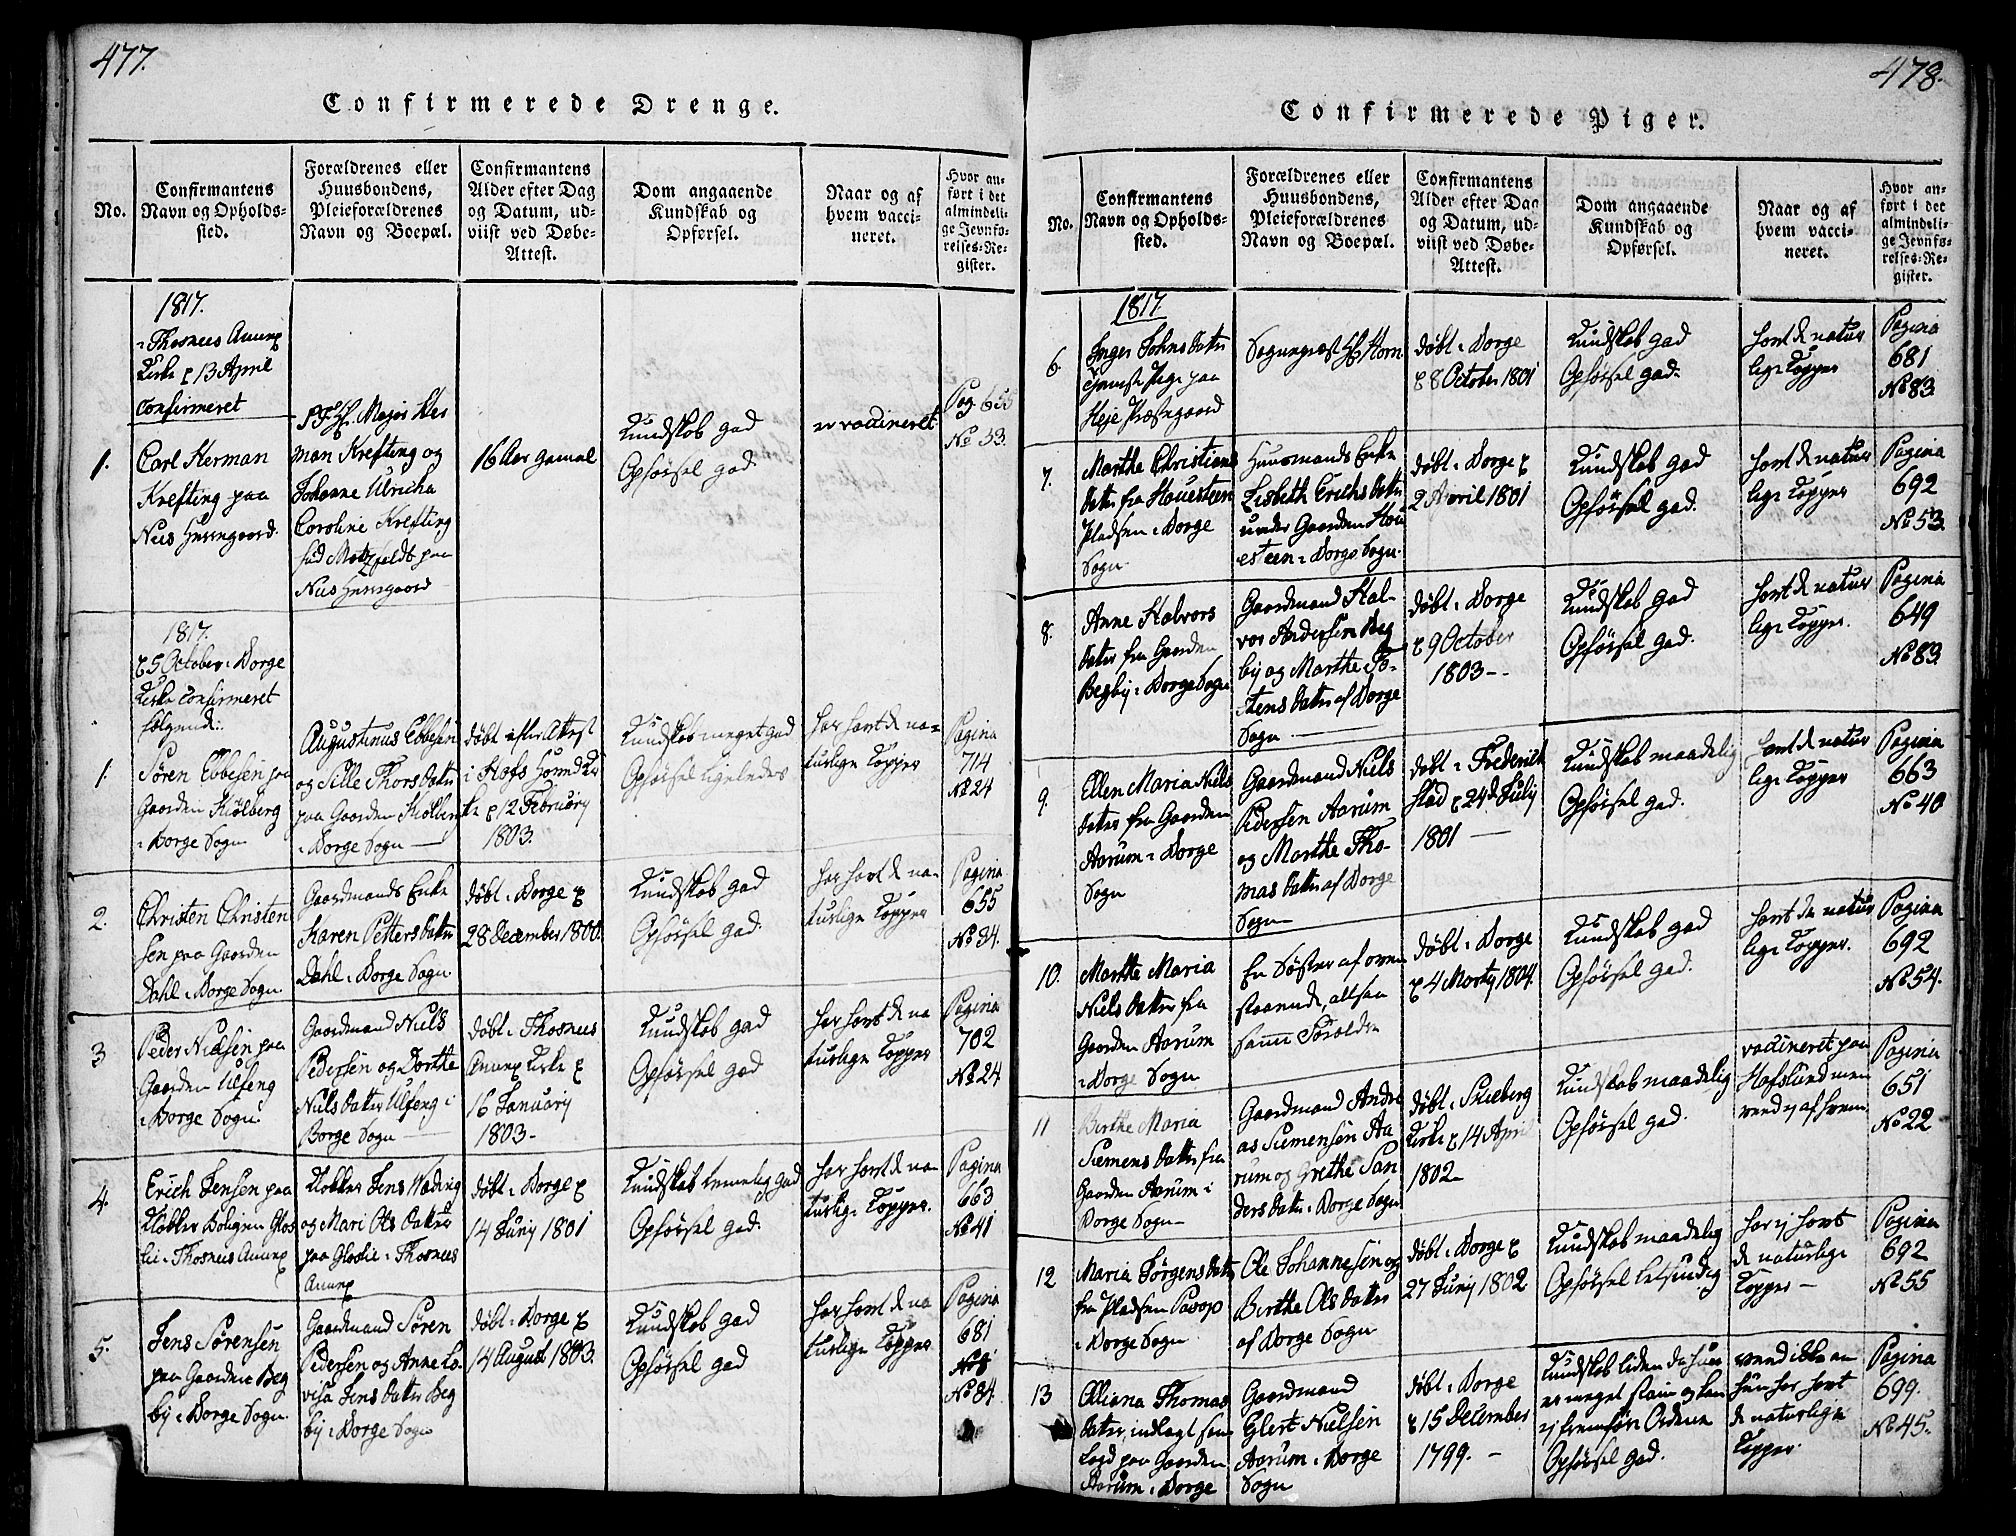 477.
Confirmerede Drenge.
No.
Confirmantens
Navn og Opholds-
sted.
Forældrenes eller
Huusbondens,
Pleieforældrenes
Navn og Boepæl.
Confirmantens
Alder efter Dag
og Datum, ud-
viist ved Døbe-
Attest.
Dom angaaende
Kundskab og
Opførsel.
Naar og af
hvem vacci-
neret.
Hvor an-
ført i det
almindeli-
ge Jevnfø-
relses-Re-
gister.
1817.
i Thosnees Annex
Kirke 13 April
confirmeret
1.
Carl Herman
Krefting paa
Nes Herregaard.
Major Her
man Krefting og
Johanne Ulricha
Caroline Krefting
fød Motzfeldt paa
Nes Herregaard
16 Aar gamal
Kundskab god
Opførsel god
er vaccineret
Pag 655
No 53.
1817.
5 October i Borge
Kirke confirmeret
følgende:
1.
Søren Ebbesen paa
Gaarden Kiølberg
i Borge Sogn
Augustinus Ebbesen
og Sille Thors Datter
paa Gaarden Kiølberg
i Borge Sogn
døbt efter Attest
i Hafs Hovedkir
ke 12 February
1803.
Kundskab meget god
Opførsel ligeledes
har havt de na-
turlige Kopper
Pagina
714
No 24
2.
Christen Christen
sen paa Gaarden
Dahl i Borge Sogn
Gaardmands Enke
Karen Petters Datter
Dahl i Borge Sogn
døbt i Borge
28 December 1800.
Kundskab god
Opførsel god.
har havt de na
turlige Kopper
Pagina
655
No 34.
3
Peder Nielsen paa
Gaarden Ulfeng
i Borge Sogn.
Gaardmand Niels
Pedersen og Dorthe
Niels Datter Ulfeng i
Borge Sogn
døbt i Thosnees
Annex Kirke
16 January
1803
Kundskab god
Opførsel god
har havt de na
turlige Kopper
Pagina
702
No 24
4.
Erich Jensen paa
Klokker Boligen Glos
lie i Thosnees Annex
Klokker Jens Wading
og Mari Ols Datter
paa Gloslie i Thosnees
Annex
døbt i Borge
14 Juny 1801
Kundskab temelig god
Opførsel god.
har havt de na
turlige Kopper.
Pagina
663
No 41
5.
Jens Sørensen
paa Gaarden Beg
by i Borge Sogn.
Gaardmand Søren
Pedersen og Anne Lo
visa Jens Datter Beg
by i Borge Sogn
døbt i Borge
14 August 1803.
Kundskab god
Opførsel god
har havt de na
turlige Kopper
Pagina
681
No 84
478.
Confirmerede Piger.
No.
Confirmantens
Navn og Opholds-
sted.
Forældrenes eller
Huusbondens,
Pleieforældrenes
Navn og Boepæl.
Confirmantens
Alder efter Dag
og Datum, ud-
viist ved Døbe-
Attest.
Dom angaaende
Kundskab og
Opførsel.
Naar og af
hvem vacci-
neret.
Hvor an-
ført i det
almindeli-
ge Jevnfø-
relses-Re-
gister.
1817
6.
Inger Johns Datter
Tieneste Pige paa
Heje Præstegaard
Sogneprest Horn
døbt i Borge
8 October 1801
Kundskab god
Opførsel god.
havt de natur
lige Kopper
Pagina
681
No 83.
7.
Marthe Christians
Datter fra Houesteen
Pladsen i Borge
Sogn
Huusmands Enke
Lisbeth Erichs Datter
under Gaarden Hou
esteen i Borge Sogn.
døbt i Borge
2 April 1801
Kundskab god
Opførsel god.
havt de natur
lige Kopper
Pagina
692
No 53.
8.
Anne Halvors
Datter fra Gaarden
Begby i Borge Sogn
Gaardmand Hal-
vor Andersen Beg
by og Marthe To-
stens Datter af Borge
Sogn
døbt i Borge
9 October
1803 --
Kundskab god
Opførsel god.
havt de natur
lige Kopper.
Pagina
649
No 83.
9.
Ellen Maria Niels
Datter fra Gaarden
Aarum i Borge
Sogn
Gaardmand Niels
Pedersen Aarum
og Marthe Tho-
mas Datter af Borge
Sogn
døbt i Frederich
stad 24 de July
1801
Kundskab maadelig
Opførsel god.
havt de natur
lige Kopper
Pagina
663
No 40
10.
Marthe Maria
Niels Datter fra
Gaarden Aarum
i Borge Sogn
En Søster af oven
staaende, altsaa
samme Forældre
døbt i Borge
4 Marty 1804.
Kundskab god
Opførsel god.
havt de natur
lige Kopper.
Pagina
692
No 54.
11
Birthe Maria
Siemens Datter fra
Gaarden Aarum i
Borge Sogn
Gaardmand Andre
as Siemensen Aa
rum og Grethe San
ders Datter i Borge Sogn
døbt i Skieberg
Kirke 14 April
1802
Kundskab maadelig
Opførsel god.
vaccineret paa
Hafslund men
veed ej af hvem
Pagina
651
No 22
12
Maria Jørgens Datter
fra Pladsen Pasop
i Borge Sogn
Ole Johannesen og
Birthe Ols Datter
af Borge Sogn
døbt i Borge
27 Juny 1802
Kundskab maadelig
Opførsel letsindig
har ej havt
de naturlige
Kopper
Pagina
692
No 55
13
Elliana Thomas
Datter, indlagt som
Legd paa Gaarden
Aarum i Borge
Gaardmand
Glert Nielsen
Aarum i Borge
Sogn
døbt i Borge
15 December
1799.
Kundskab liden da hun
er meget stam og kan
ej fremføre Ordene
Opførsel god.
veed ikke om
hun har havt
de naturlige
Kopper.
Pagina
699.
No 45.